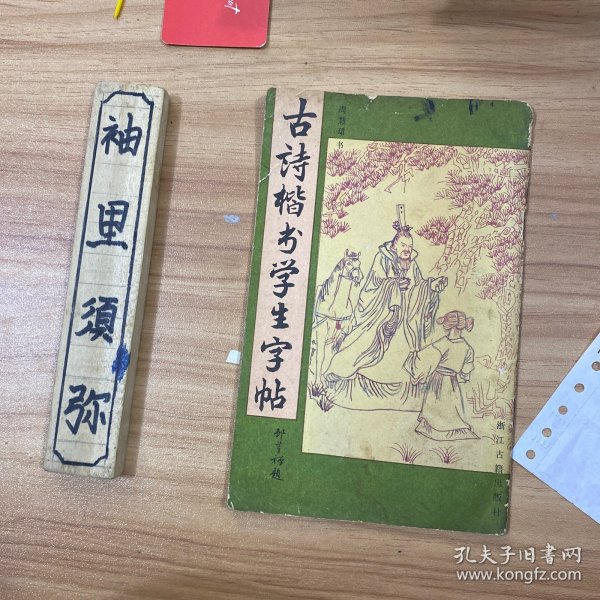 袖里须弥
古诗楷书学生字帖
周慧珺书
浙江古籍出版社
孔夫子旧书网
www.kongfz.com